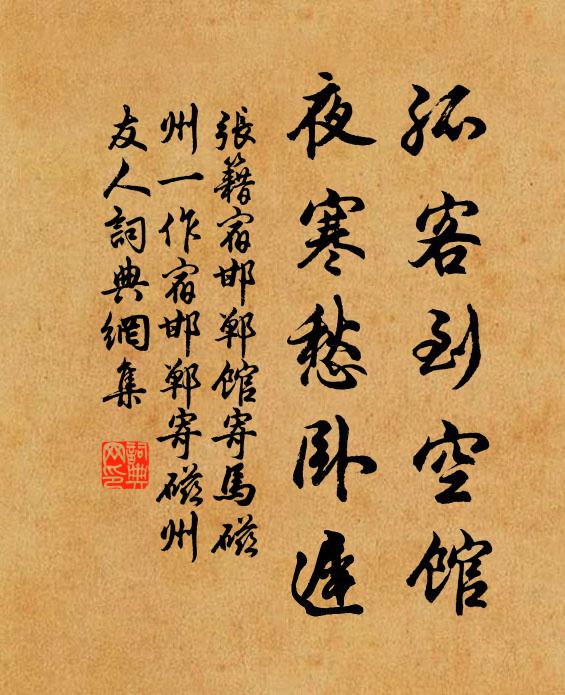 孤客到空館
夜寒愁臥遲
張籍宿邯鄲館寄馬磁
州一作宿邯鄲寄磁州
友人詞典網集
詞典
网印